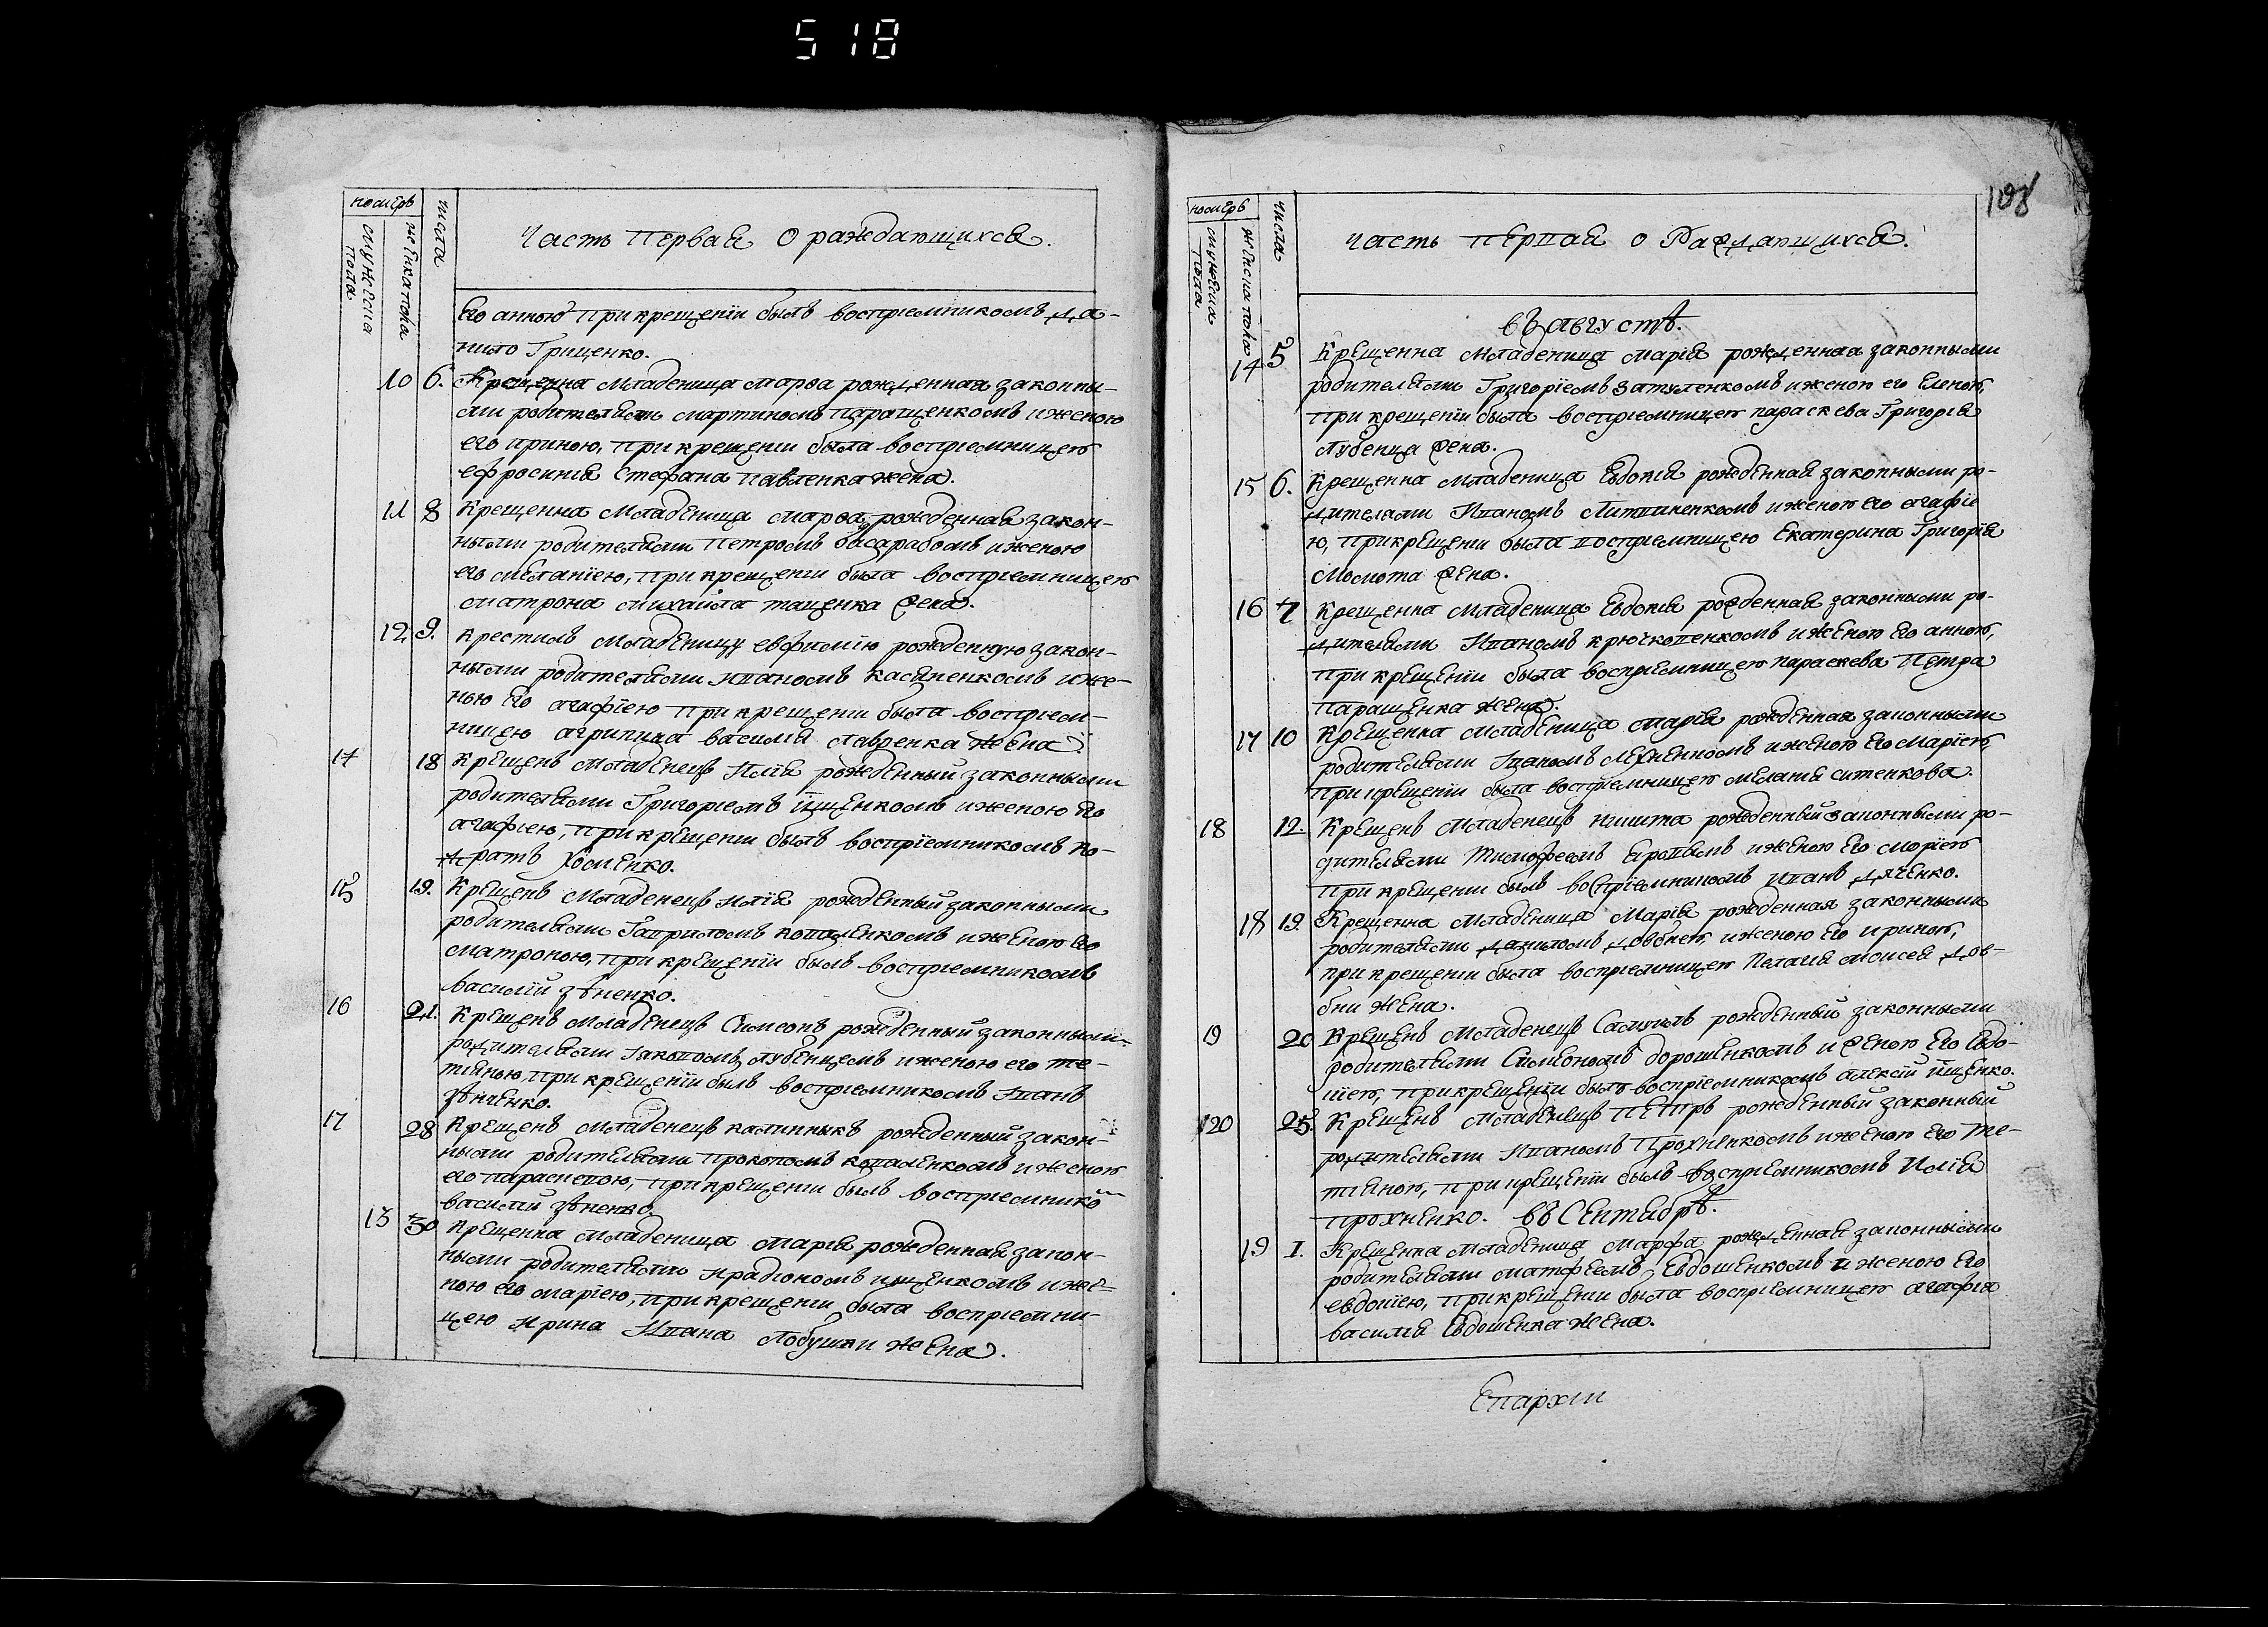 518
номеръ
мужеска пола
женска пола
числа
Часть первая о раждающихся.
его анною при крещеніи былъ воспріемникомъ да-
нило Гриценко.
10 6. Крещенна младеница марѳа рожденная законны-
ми родителями мартиномъ паращенкомъ и женою
его ириною, при крещеніи была воспріемницею
ефросинія Стефана павленка жена.
11 8 Крещенна младеница марѳа рожденная закон-
ными родителями петромъ басарабомъ и женою
его меланіею, при крещеніи была воспріемницею
матрона михайла таценка жена.
12 9. крестилъ младеницу евфимію рожденную закон-
ными родителями иваномъ касяненкомъ и же-
ною его агафіею при крещеніи была воспріем-
ницею агрипина василія лавренка жена.
14 18 Крещенъ младенецъ Илія рожденный законными
родителями Григоріемъ ищенкомъ и женою его
агафіею, при крещеніи былъ воспріемникомъ ко-
дратъ хоменко.
15 19. Крещенъ младенецъ илія рожденный законными
родителями Гавриломъ коваленкомъ и женою его
матроною, при крещеніи былъ воспріемникомъ
василій зѣненко.
16 21. Крещенъ младенецъ Симеонъ рожденный законными
родителями іаковомъ лубенцемъ и женою его те-
тіяною, при крещеніи былъ воспріемникомъ іванъ
зѣнченко.
17 28 Крещенъ младенецъ калинныкъ рожденный закон-
ными родителями прокопомъ коваленкомъ и женою
его параскевою, при крещеніи былъ воспріемнико
василій зѣненко.
13 30 Крещенна младеница марія рожденная закон-
ными родителями ирадіономъ ищенкомъ и же-
ною его маріею, при крещеніи была воспріемни-
цею ирина Ивана Лобушки жена.
108
номеръ
мужеска пола
женска пола
числа
часть первая о Раждающихся.
въ августѣ.
14 5 Крещенна младеница марія рожденная законными
родителями Григоріемъ Затуленкомъ и женою его еленою,
при крещеніи была воспріемницею параскева Григорія
Лубенца жена.
15 6. Крещенна младеница Евдокія рожденная законными ро-
дителями Иваномъ Литвиненкомъ и женою его агафіе
ю, при крещеніи была воспріемницею Екатерина Григорія
Момота жена.
16 7 крещенна младеница Евдокія рожденная законными ро-
дителями Иваномъ крючковенкомъ и женою его анною,
при крещеніи была воспріемницею параскева Петра
паращенка жена.
17 10 Крещенна младеница марія рожденная законными
родителями іваномъ Лехненкомъ и женою его маріею,
при крещеніи была воспріемницею меланія ситенкова.
18 12. Крещенъ младенецъ никита рожденный законными ро-
дителями Тимофеемъ и женою его маріею
при крещеніи былъ воспріемникомъ иванъ дяченко.
18 19. Крещенна младеница Марія рожденная законными
родителями даниломъ довбнею, и женою его ириною,
при крещеніи была воспріемницею Пелагія моисея дов-
бни жена.
19 20 Крещенъ младенецъ Самуилъ рожденный законными
родителями Симеономъ дорошенкомъ и женою его Евдо-
кіею, при крещеніи былъ воспріемникомъ алексій ищенко.
20 25. Крещенъ младенецъ петръ рожденный законный
родителями Иваномъ Прохненкомъ и женою его те-
тіяною, при крещеніи былъ воспріемникомъ Илія
прохненко. въ Сентябрѣ.
19 1. Крещенна младеница марфа рожденная законными
родителями матфеемъ Евдошенкомъ и женою его
евдокіею, при крещеніи была воспріемницею агафія
василія Евдошенка жена.
Епархіи